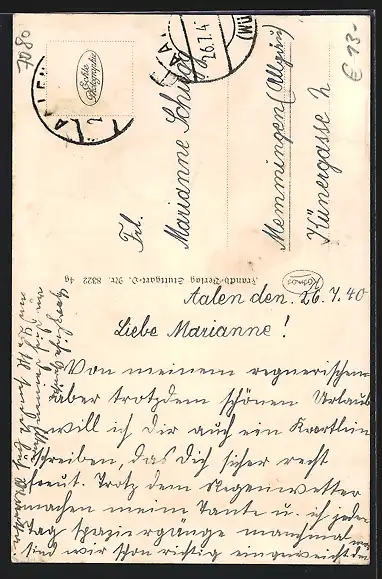 7080
€ 13.-
AALEN
26.7.4
Echte Photographie
Frl.
Marianne
Memmingen (Allgäu)
Künergasse
Franckh-Verlag Stuttgart-O. Nr. 8322
Kosmos
Aalen den. 26.7.40
Liebe Marianne!
Von meinem regnerischem
aber trotzdem schönen Urlaub
will ich Dir auch ein Kärtlein
schreiben, das Dich sicher recht
freut. Trotz dem Regenwetter
machen meine Tante u. ich jeden
Tag spaziergänge manchmal
sind wir schon richtig eingeweicht